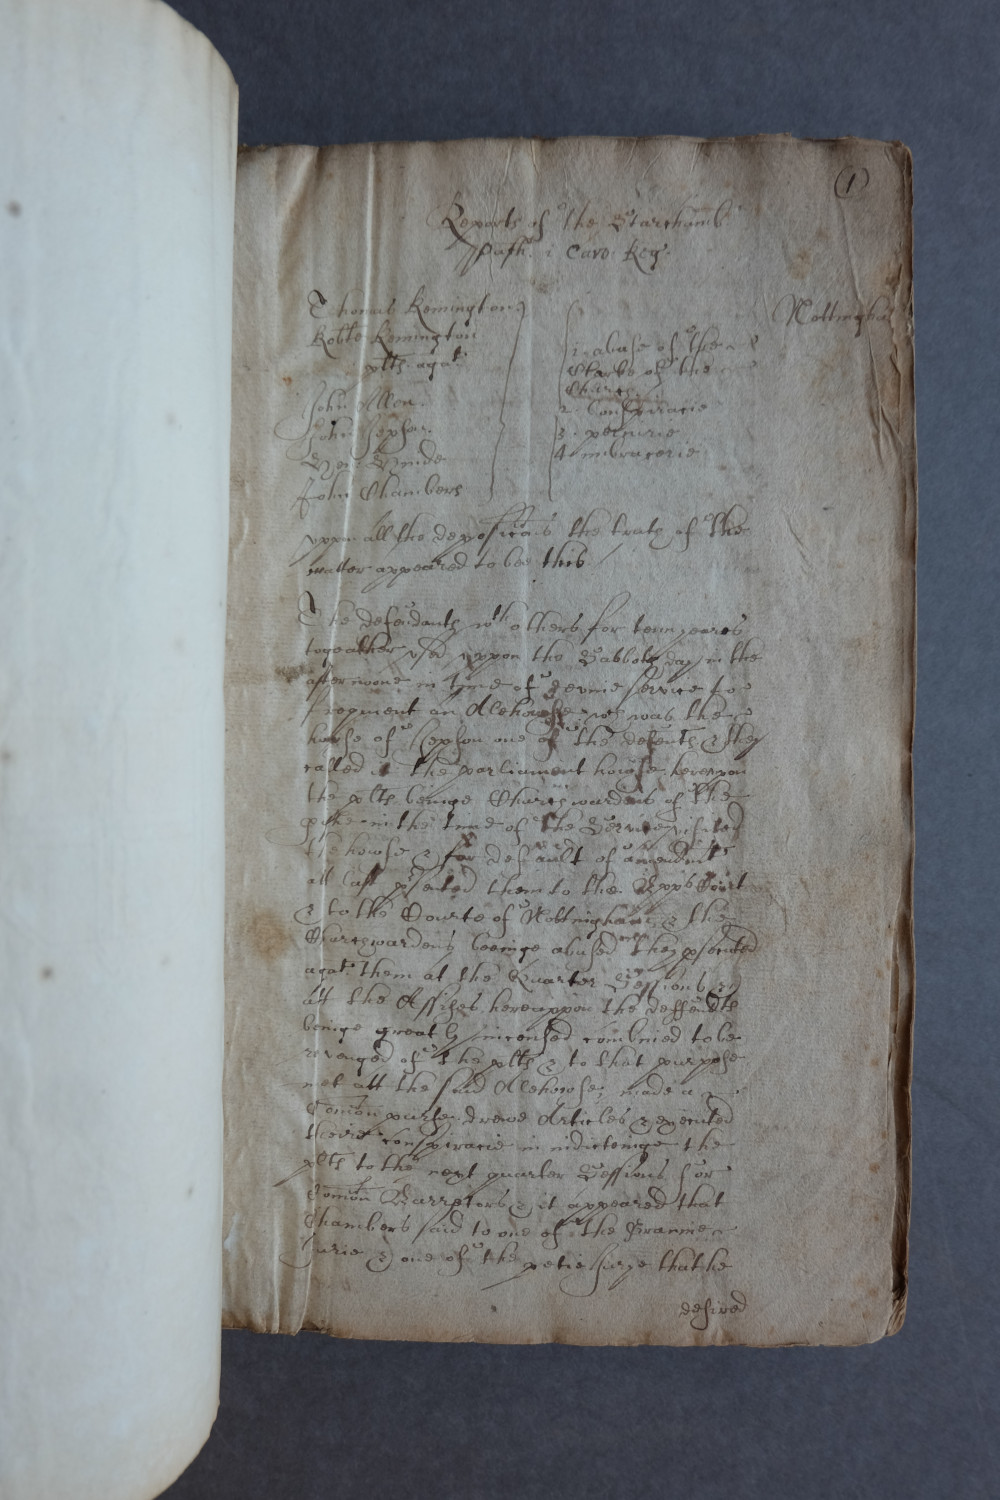 1
Reports of the Starchamb
Pasch. 1 Caro. Reg.
Nottingha
Thomas Remington
Robte Remington
plts agat
John Allen.
John Jepson.
John Chambers
1. abuse of the
Starke of the
Church
2. Conspiracie
3. periurie
4. imbracerie
vppon all the deposicons the trute of the
matter appeared to bee this
The defendants wth others for tenn yeares
togeather vsed vppon the Sabboth day in the
afternoone in tyme of devine service to
frequent an Alehowse wch was the
howse of Jepson one of the defents & they
called it the parliament howse herevpon
the plts beinge Churchwardens of the
pishe in the tyme of the Service visited
the howse & for default of amendmt
att last psented them to the Appts Court
& to the Courte of Nottingham & the
Churchwardens beeinge abused they psecuted
agat them at the Quarter Sessions &
att the Assises herevppon the deffendts
beinge greatly incensed combined to be
revenged of the plts & to that purpose
met att the said Alehowse, made a
Comon purse, drewe Articles & executed
their conspiracie in indicteinge the
plts to the next quarter Sessions for
Comon Barretors & it appeared that
Chambers said to one of the Grannd
Jurie & one of the petie Jurye that he
desired